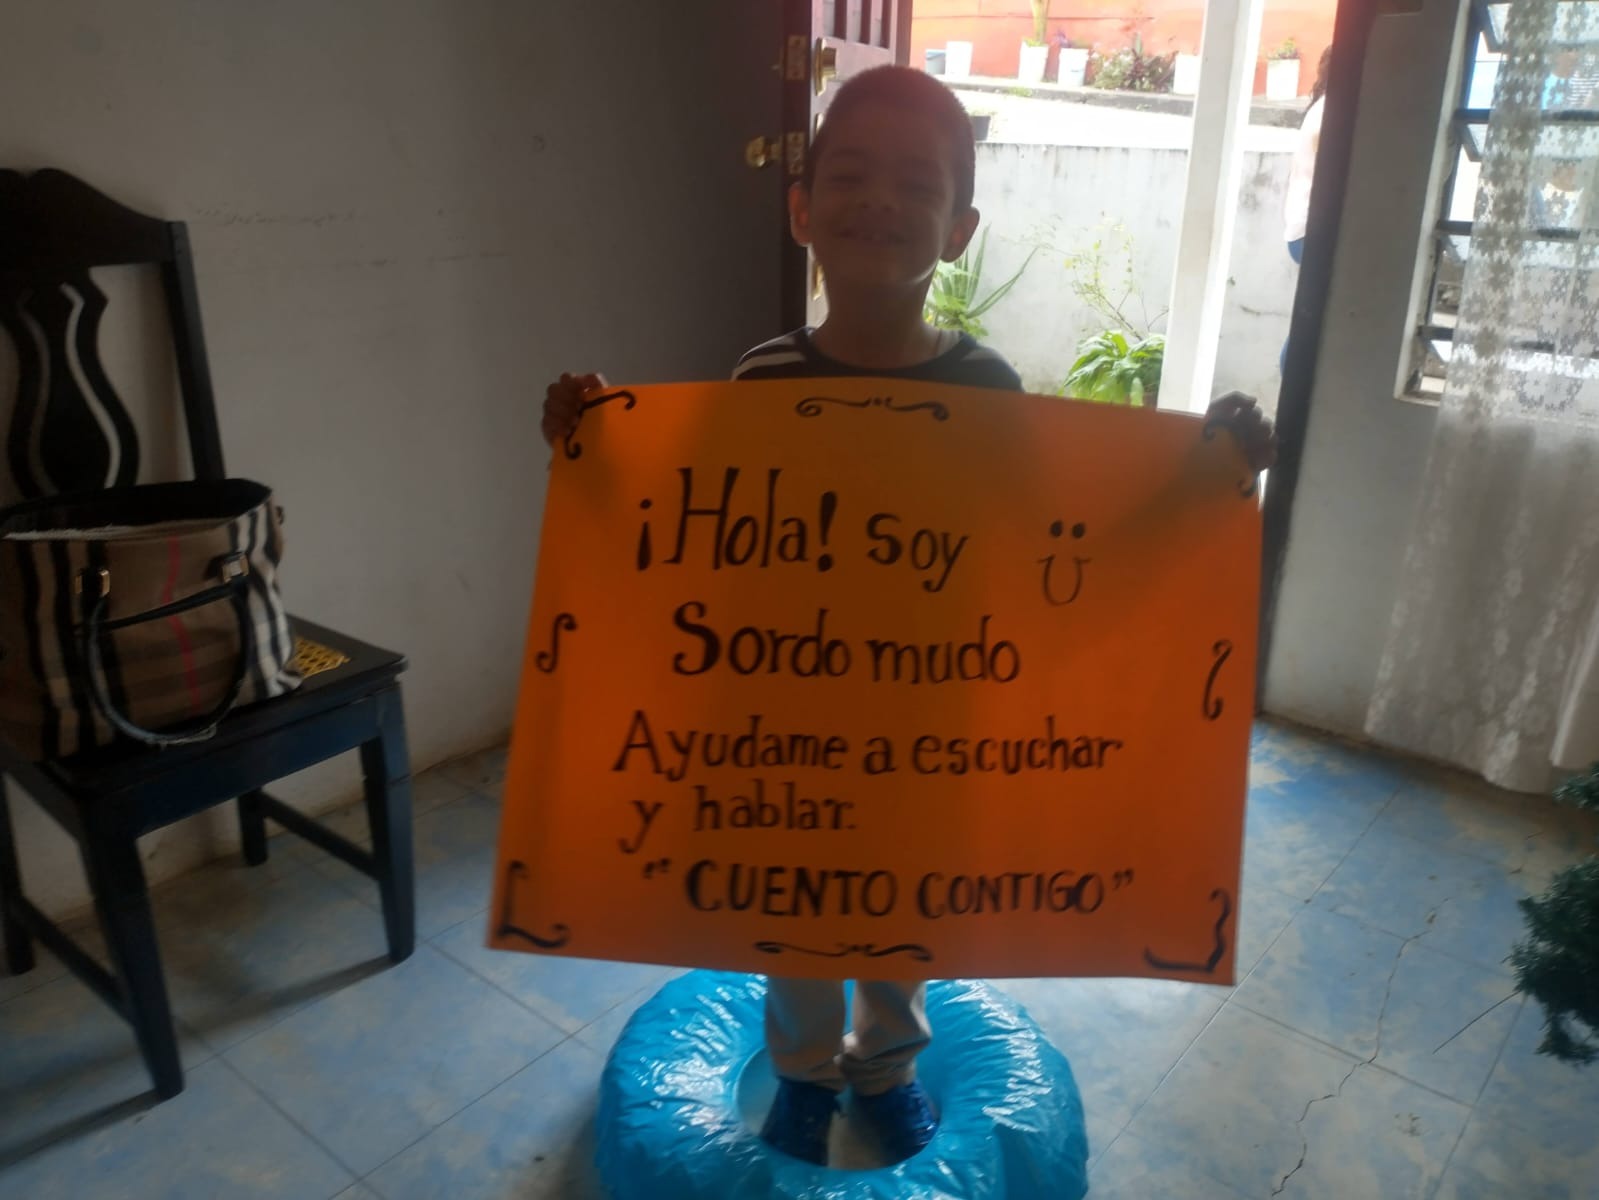 ¡Hola! soy
Sordo mudo
Ayudame a escuchar
y hablar.
"CUENTO CONTIGO"